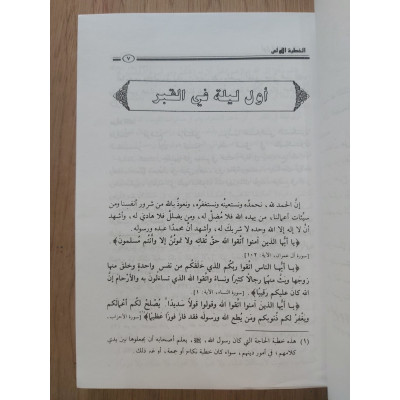 الخطبة الأولى
٧
أول ليلة في القبر
إنَّ الحمد لله، نحمدُه ونستعينُه ونستغفرُه، ونعوذُ بالله من شرور أنفسنا ومن
سيِّئات أعمالنا، من يهده الله فلا مُضلَّ له، ومن يضللْ فلا هادي له، وأشهد
أنْ لا إله إلا الله وحده لا شريك له، وأشهد أنَّ محمدًا عبده ورسوله.
﴿يا أيُّها الذين آمنوا اتَّقوا الله حقَّ تُقاته ولا تموتُنَّ إلا وأنْتُم مُسلمون﴾
[سورة آل عمران، الآية: ١٠٢].
﴿يـا أيُّها الناس اتَّقوا ربَّكم الذي خلَقَكُم من نفسٍ واحدةٍ وخلق منها
زوجها وبثَّ منهُما رجالًا كثيرًا ونساءً واتَّقوا الله الذي تساءلون به والأرحام إنَّ
الله كان عليكُم رقيبًا﴾. [سورة النساء، الآية: ١].
﴿يـا أيُّها الذين آمنوا اتَّقوا الله وقولوا قولًا سديدًا ۞ يُصْلِحْ لكُم أعْمالكُم
ويغْفرْ لكُم ذُنوبكُم ومن يُطع الله ورسوله فقد فازَ فوزًا عظيمًا﴾ [سورة الأحزاب،
(١) هذه خطبة الحاجة التي كان رسول الله، ﷺ، يعلم أصحابه أن يجعلوها بين يدي
كلامهم؛ في أمور دينهم، سواء كان خطبة نكاح أو جمعة، أو غير ذلك.